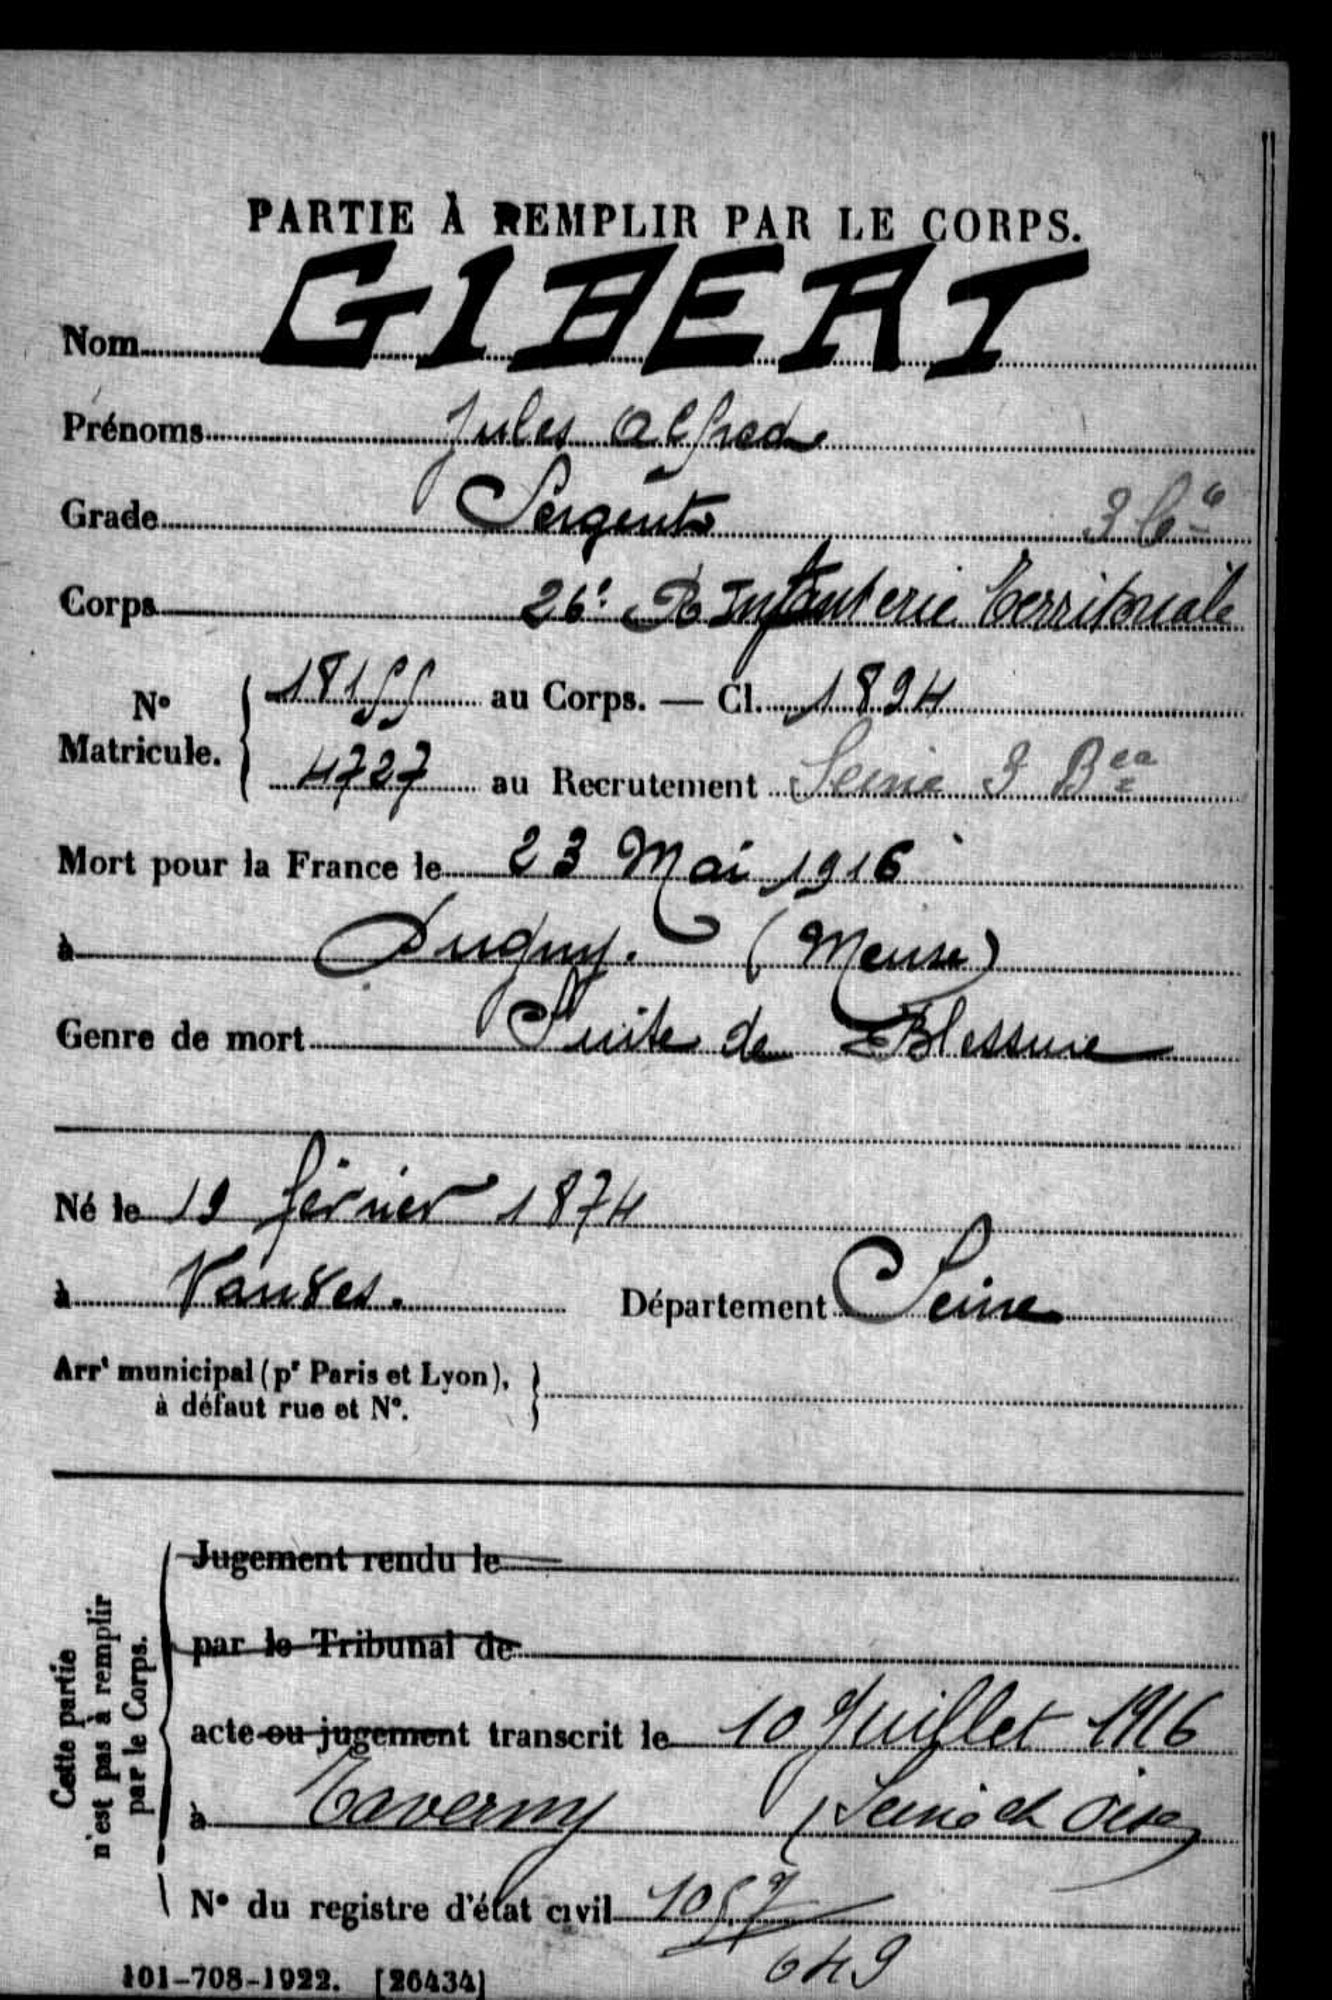 PARTIE À REMPLIR PAR LE CORPS.
Nom GIBERT
Prénoms Jules Alfred
Grade Sergent 3 Cie
Corps 26e R Infanterie Territoriale
No Matricule. { 18155 au Corps. — Cl. 1894
4727 au Recrutement Seine 3 Bau
Mort pour la France le 23 Mai 1916
à Dugny. (Meuse)
Genre de mort Suite de Blessure
Né le 19 février 1874
à Vanves. Département Seine
Arrt municipal (pr Paris et Lyon),
à défaut rue et No.
Cette partie
n'est pas à remplir
par le Corps.
Jugement rendu le
par le Tribunal de
acte ou jugement transcrit le 10 Juillet 1916
à Taverny (Seine et Oise
No du registre d'état civil
649
101-708-1922. [26434]